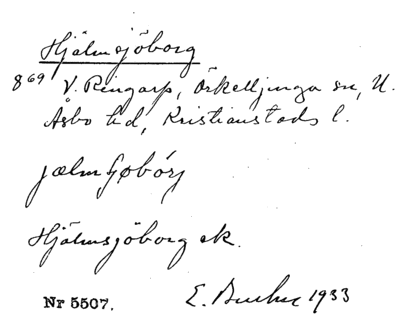 Hjälmsjöborg
8⁶⁹ V. Ringarp, Örkelljunga sn, N.
Åsbo hd, Kristianstads l.
jælmʃøbórj
Hjälmsjöborg ek.
Nr 5507.
E. 1933